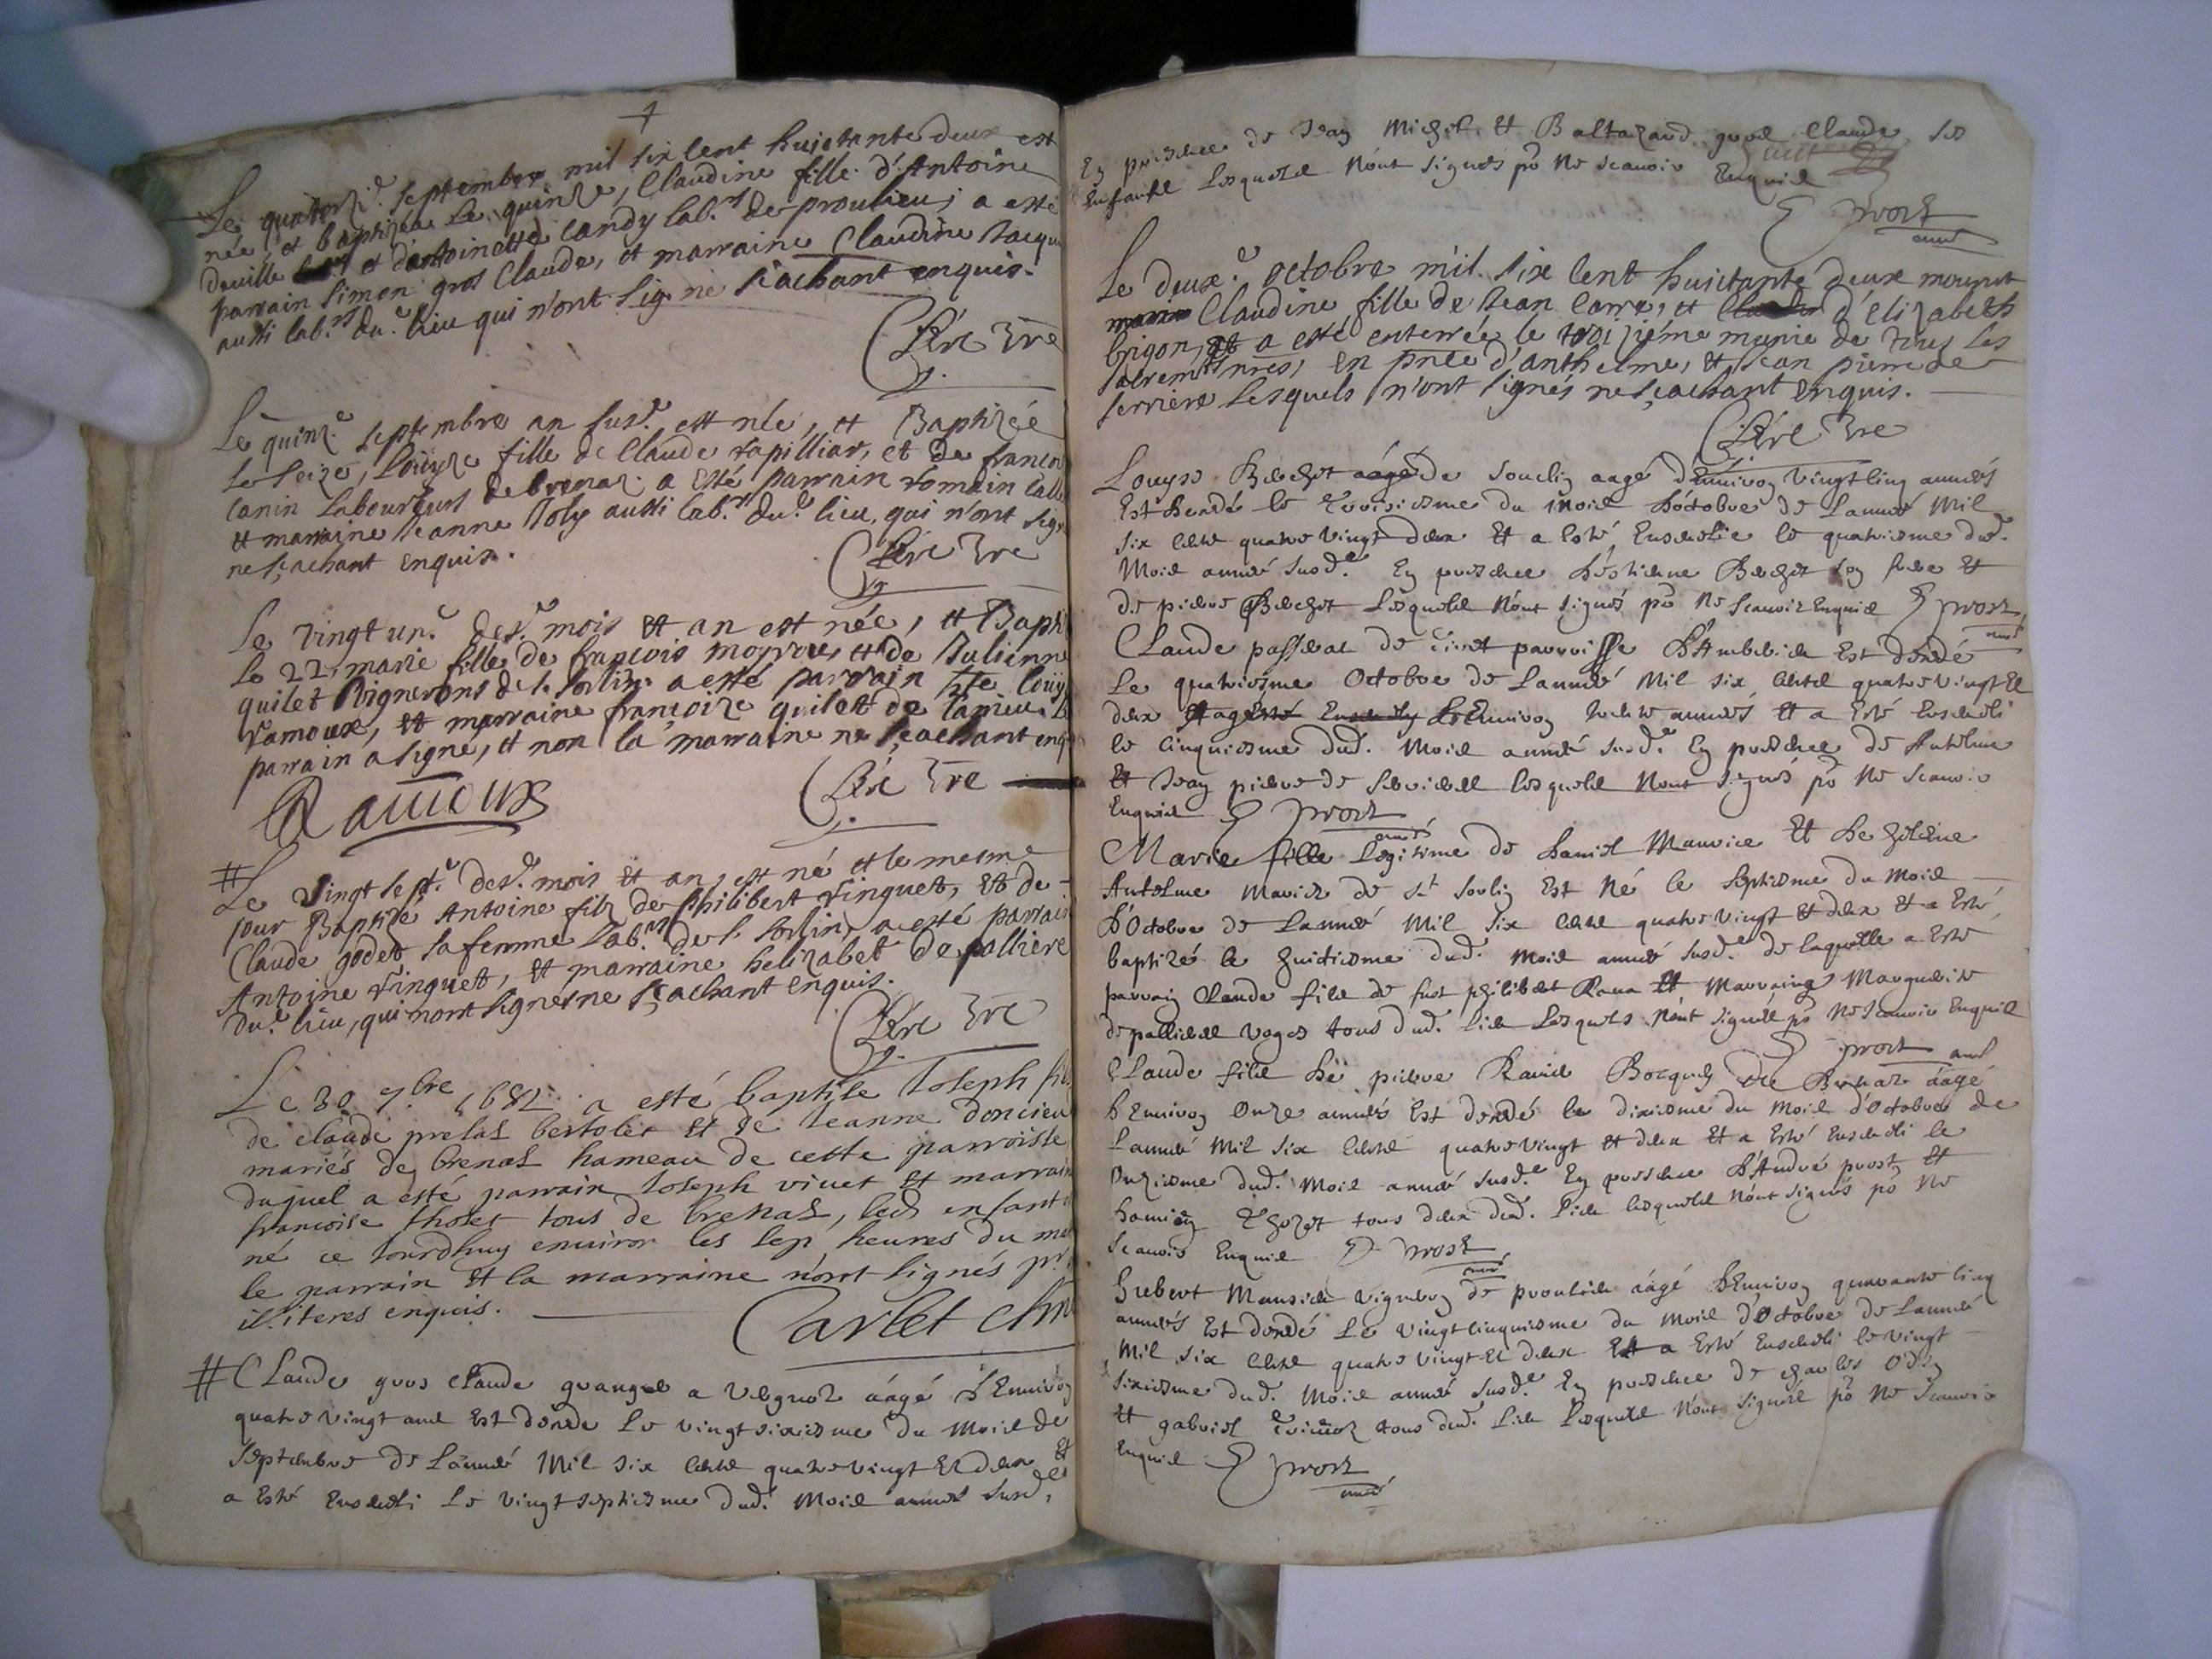 Le quatorz.e septembre mil six Cent huictante deux est
née, et baptizée le quinze, Claudine fille d'Antoine
deville et d'antoinette Candy lab.rs de proulieu; a esté
parrain Simon gros Claude, et marraine Claudine Jacqu
aussi lab.rs du.t lieu qui n'ont signé sçachant enquis.
Le quinz.e septembre an sus.t est née, et Baptizée
le seize, Loüyze fille de Claude rapilliar, et de françoi
Canin Laboureurs de brenaz. a esté parrain romain
et marraine Jeanne Joly aussi lab.rs du.t lieu, qui n'ont sig
ne sçachant enquis.
Le vingt un.e des.t mois et an est née, et Bapti
le 22, marie fille de françois et de Julienne
quilet vignerons de s. sorlin. a esté parrain loüy
ramoux, et marraine françoize quilet de lanieu. Le
parrain a signé, et non la marraine ne sçachant enq
Ramoux
# Le vingt sept.e des.t mois et an, est né et le mesme
jour Baptizé Antoine filz de philibert vinguet, et de
Claude godet sa femme Lab.rs de s. sorlin, a esté parrain
Antoine vinguet, et marraine helizabet de pallière
du.t lieu, qui n'ont signés ne sçachant enquis.
Le 30 7.bre 1682 a esté baptise Joseph fils
de claude prelat bertolet et de Jeanne doncieu
mariés de brenas hameau de cette parroisse
duquel a esté parrain Joseph vivet et marrain
francoise thoret tous de brenas, led enfant
né ce jourdhuy environ les sep heures du ma
le parrain et la marraine n'ont signés p.r
illiteres enquis.
Carlet
# CLaude gros claude grangé a aágé d'Environ
quatre vingt ans Est dérédé Le vingt sixiesme du Mois de
Septembre de Lannée Mil six cents quatre vingt et deux Et
a Esté Enseveli Le vingt septiesme dud. Mois année susd.e
En presence de Jean Michel Et Baltazard gros Claude ses
Enfants Lesquels n'ont signés po ne scavoir Enquis
prost
Le deux.e octobre mil six Cent huictante deux mourut
Claudine fille de Jean Carre, et d'élizabeth
brigon, a esté enterrée le troiziéme munie de tous les
sacrem.ts en pnce d'anthelme, et Jean pierre de
serriere lesquels n'ont signés ne sçachant enquis.
Louyse Berchet aágé de Souclin aagé d'Environ vingt cinq années
Est dérédé le troisiesme du mois d'octobre de Lannée Mil
six cents quatre vingt deux Et a Esté Ensevelie le quatriesme dud.
Mois année susd.e En presence d'Estienne Berchet son frere Et
de pierre Berchet Lesquels n'ont signés po ne scavoir Enquis prost
Claude passerat de parroisse d'Amberieu Est dérédé
Le quatriesme Octobre de Lannée Mil six cents quatre vingt Et
deux d'Environ trente années Et a Esté Enseveli
le cinquiesme dud. Mois année susd.e En presence de Antelme
Et Jean pierre de serrieres Lesquels n'ont signés po ne scavoir
Enquis prost
Marie fille Legitime de daniel Maurice Et de
Antelme mariés de S.t Sorlin Est né le septiesme du mois
d'Octobre de Lannée Mil six cents quatre vingt et deux Et a Esté
baptizé le huictiesme dud. Mois année susd.e de laquelle a Esté
parrain Claude fils de feut philibert Ravat Et Marraine Marguerite
de pallieres tous dud. Lieu Lesquels n'ont signés po ne scavoir Enquis
prost
Claude fils de pierre Ravier Bocquin de Brenaz áagé
d'Environ onze années Est dérédé le dixiesme du mois d'Octobre de
Lannée Mil six cents quatre vingt et deux Et a Esté Enseveli le
Onziesme dud. mois année susd.e En presence d'André prost Et
damien thoret tous deux dud. Lieu Lesquels n'ont signés po ne
scavoir Enquis prost
Hubert Mansieu vigneron de proulieu aágé d'Environ quarante cinq
années Est dérédé Le vingt cinquiesme du mois d'Octobre de Lannée
Mil six cents quatre vingt et deux Et a Esté Enseveli le vingt
sixiesme dud. Mois année susd.e En presence de charles
Et gabriel tous dud. Lieu Lesquels n'ont signés po ne scavoir
Enquis prost